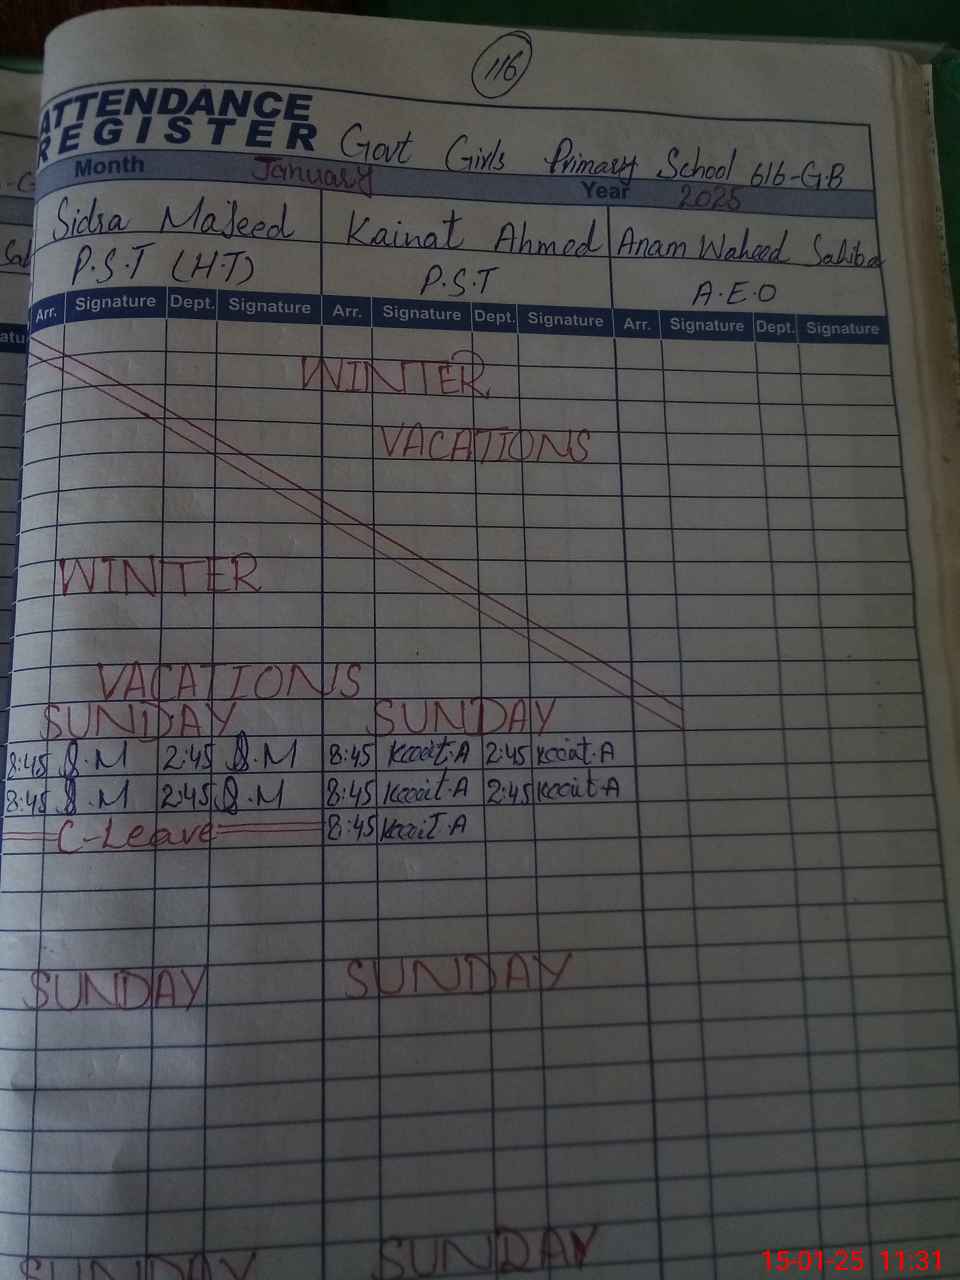 116
ATTENDANCE
REGISTER Govt Girls Primary School 616-G.B
Month January Year 2025
Sidra Majeed Kainat Ahmed Anam Waheed Sahiba
P.S.T (H.T) P.S.T A.E.O
Arr. Signature Dept. Signature Arr. Signature Dept. Signature Arr. Signature Dept. Signature
WINTER
VACATIONS
WINTER
VACATIONS
SUNDAY SUNDAY
8:45 S.M 2:45 S.M 8:45 2:45
8:45 S.M 2:45 S.M 8:45 2:45
C-Leave 8:45
SUNDAY SUNDAY
SUNDAY SUNDAY
15-01-25 11:31